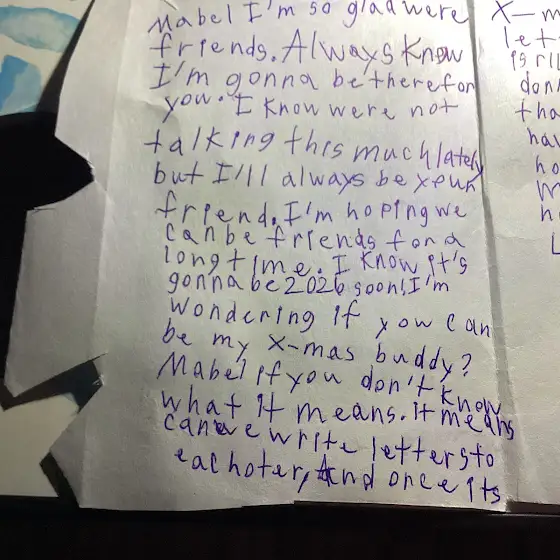 Mabel I'm so glad were
friends. Always know
I'm gonna be there for
you. I know were not
talking this much lately
but I'll always be your
friend. I'm hoping we
can be friends for a
long time. I know it's
gonna be 2026 soon! I'm
wondering if you can
be my x-mas buddy?
Mabel if you don't know
what it means. it means
can we write letters to
eachoter, And once its
X-m
lett
is ri
don'
tho
hav
ho
h
L